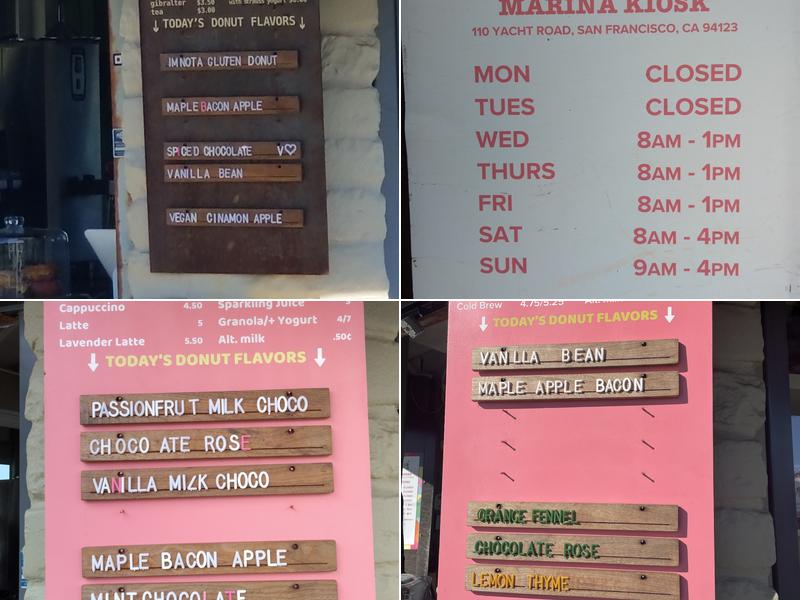 gibralter $3.50 with strauss yogurt
tea $3.00
TODAY'S DONUT FLAVORS
IMNOTA GLUTEN DONUT
MAPLE BACON APPLE
SPICED CHOCOLATE V♡
VANILLA BEAN
VEGAN CINAMON APPLE
MARINA KIOSK
110 YACHT ROAD, SAN FRANCISCO, CA 94123
MON CLOSED
TUES CLOSED
WED 8AM - 1PM
THURS 8AM - 1PM
FRI 8AM - 1PM
SAT 8AM - 4PM
SUN 9AM - 4PM
Cappuccino 4.50 Sparkling Juice
Latte 5 Granola/+ Yogurt 4/7
Lavender Latte 5.50 Alt. milk .50¢
TODAY'S DONUT FLAVORS
PASSIONFRU T MILK CHOCO
CHOCO ATE ROSE
VANILLA MILK CHOCO
MAPLE BACON APPLE
MINT CHOCOLATE
Cold Brew 4.75/5.25 Alt.
TODAY'S DONUT FLAVORS
VAN LLA BEAN
MAPLE APPLE BACON
ORANGE FENNEL
CHOCOLATE ROSE
LEMON THYME